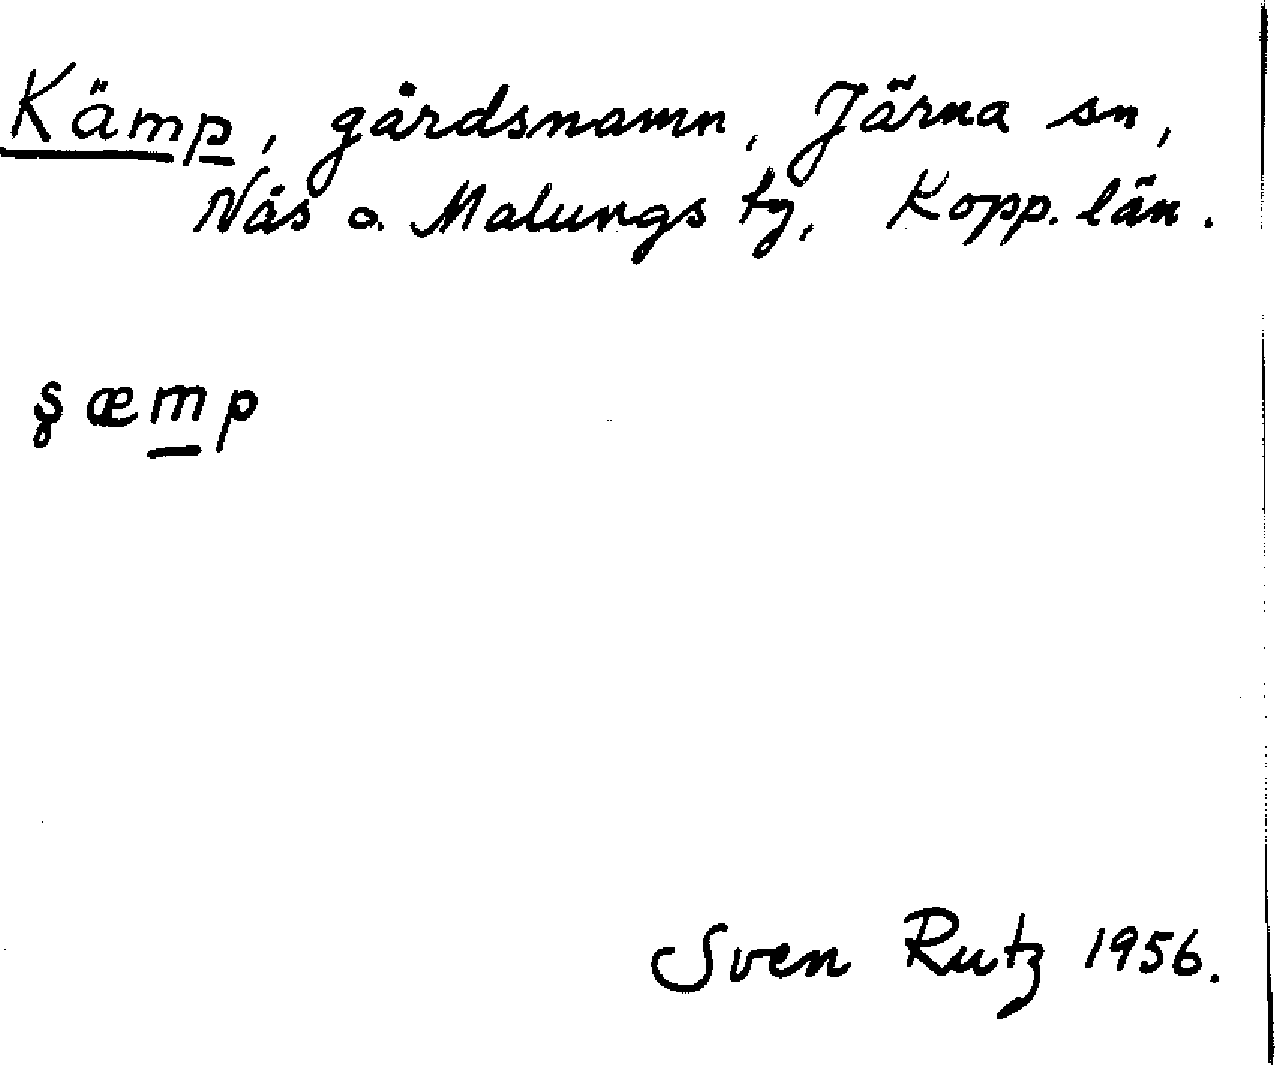 Kämp, gårdsnamn, Järna sn,
Näs o. Malungs tg, Kopp. län.
ꞩæmp
Sven Rutz 1956.